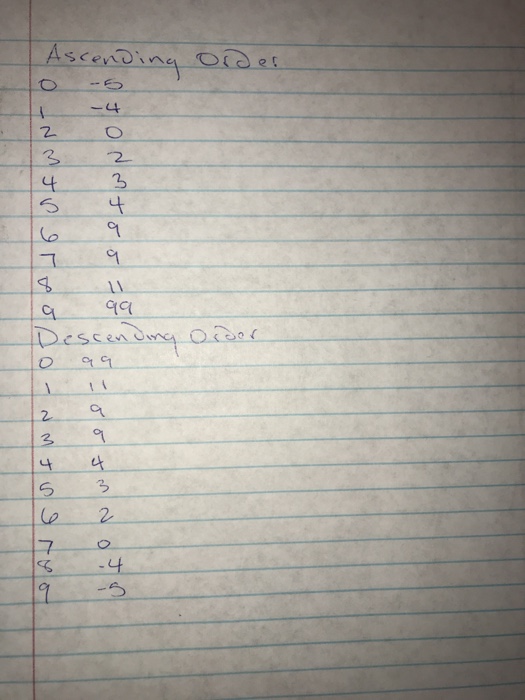 Ascending Order
0 -5
1 -4
2 0
3 2
4 3
5 4
6 9
7 9
8 11
9 99
Descending Order
0 99
1 11
2 9
3 9
4 4
5 3
6 2
7 0
8 -4
9 -5